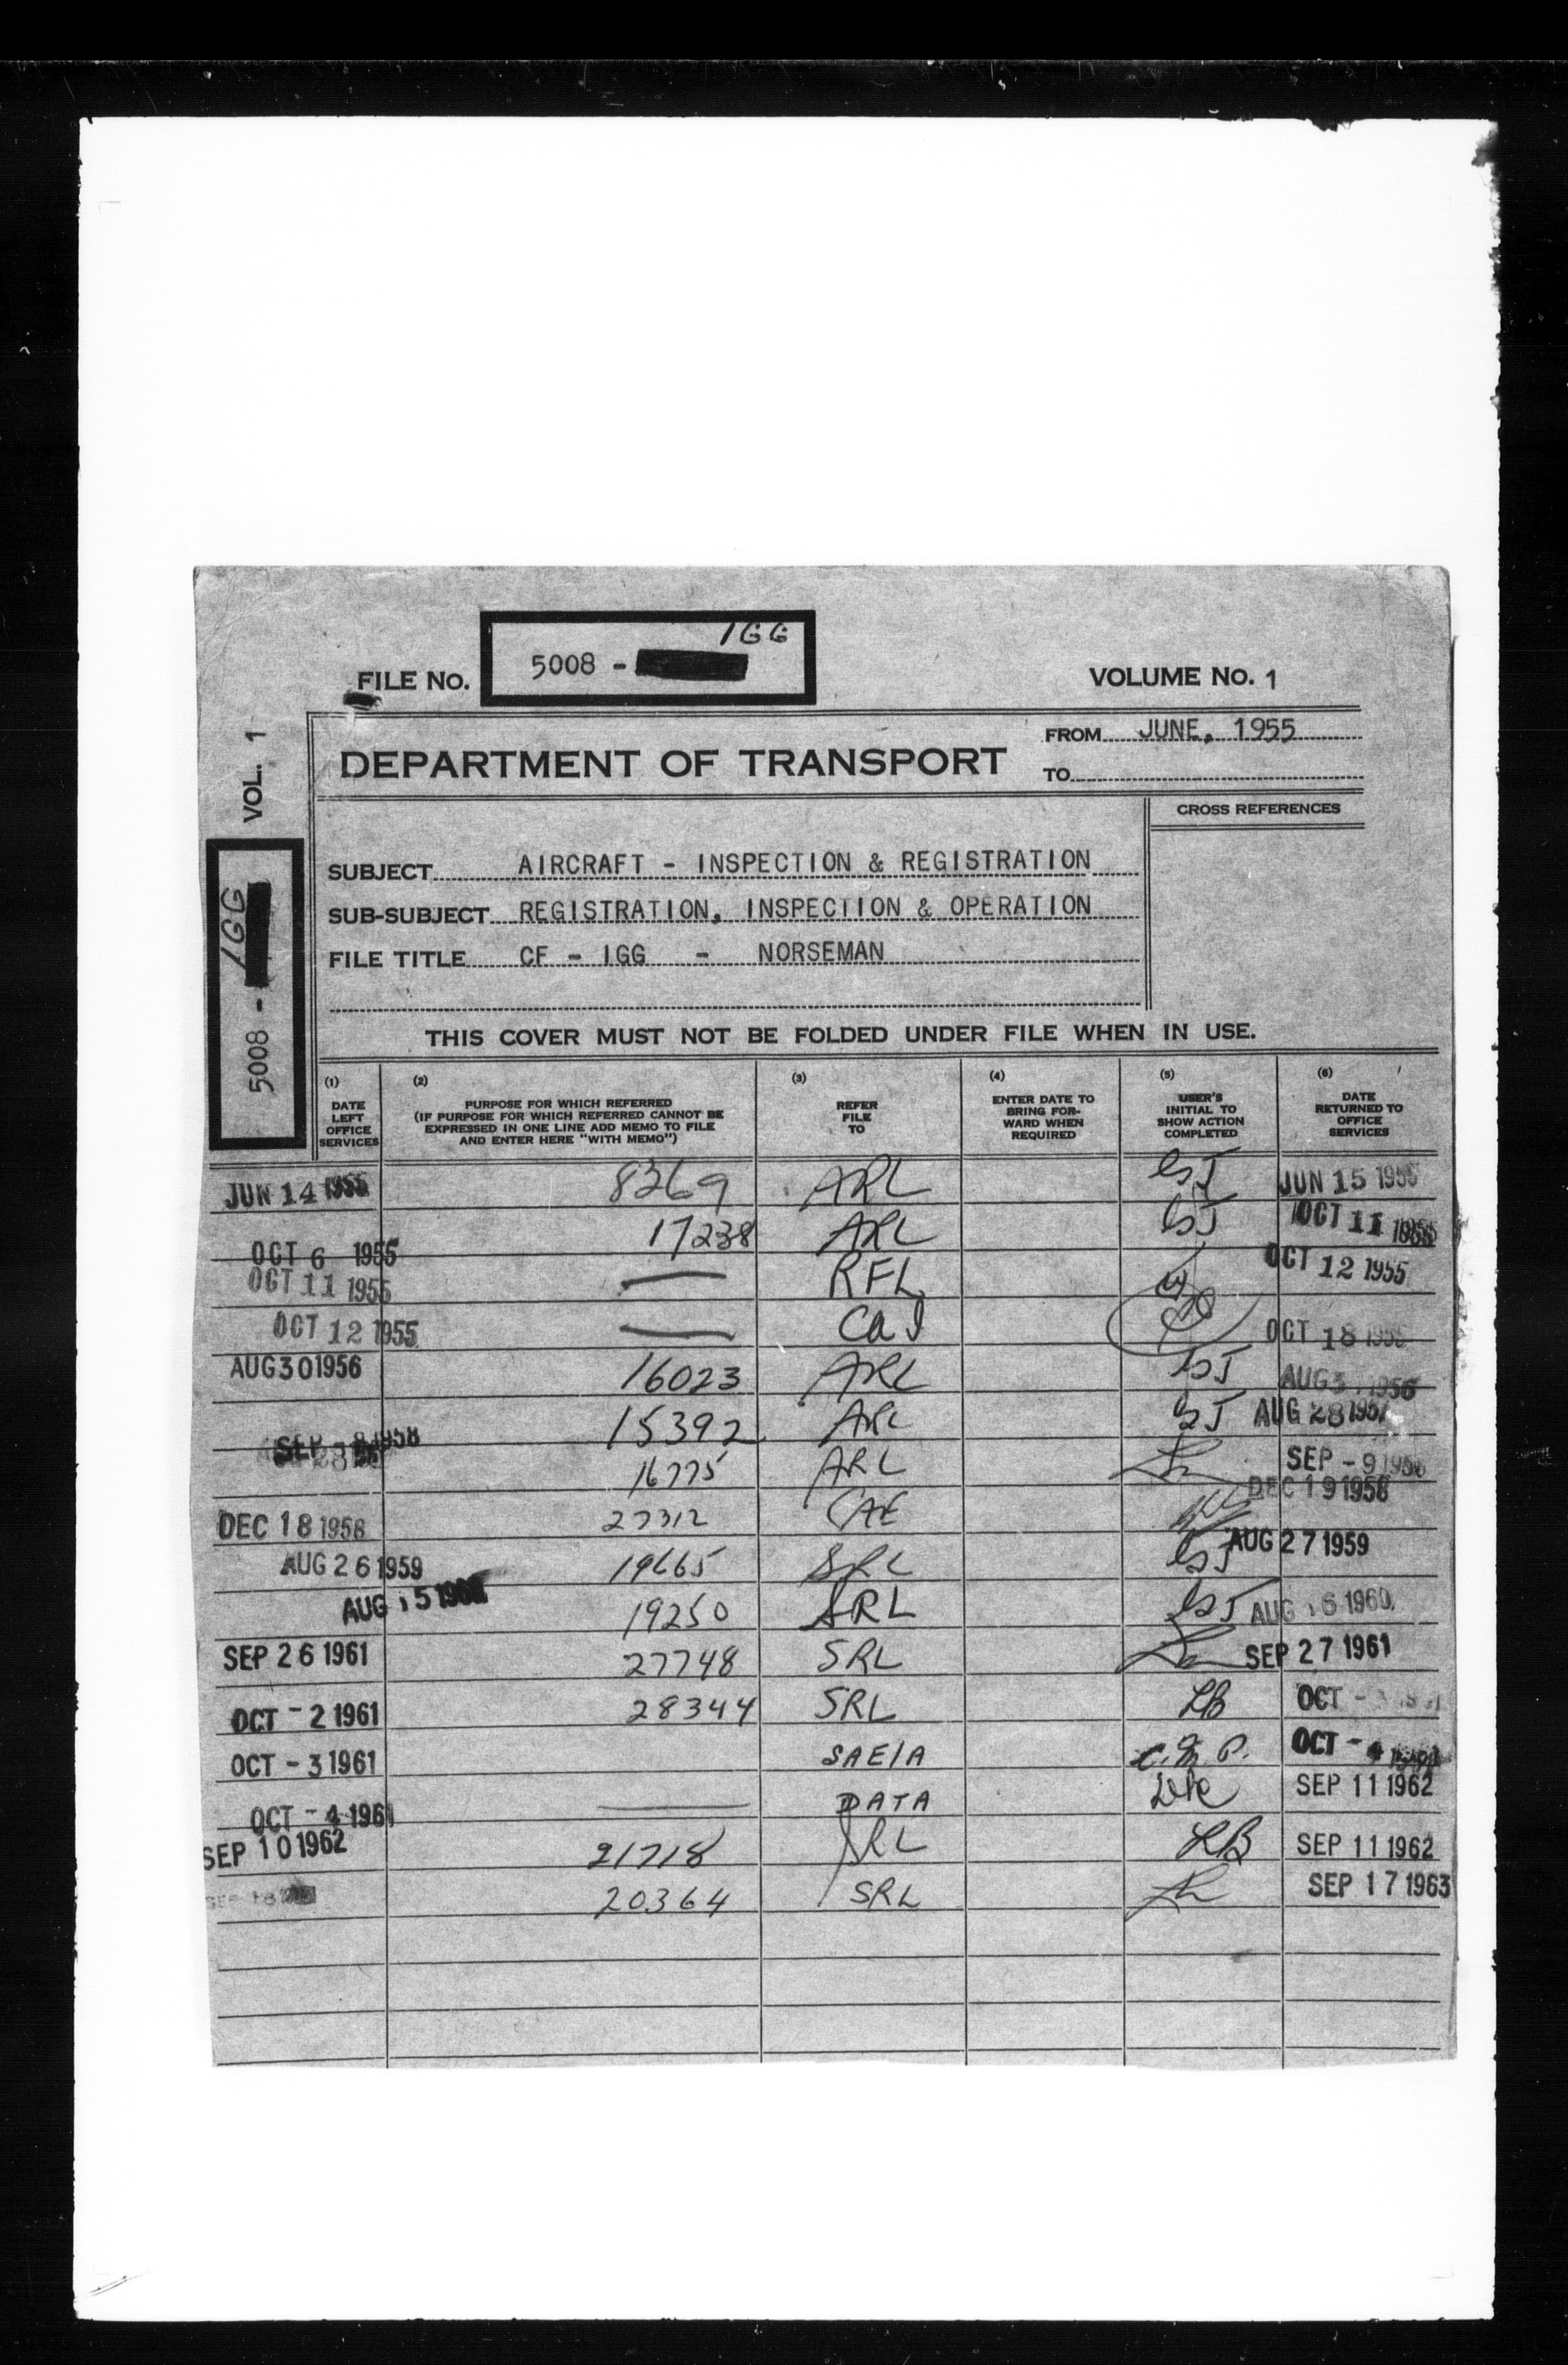 IGG
FILE No. 5008 -
VOLUME No. 1
VOL. 1
5008 - IGG
DEPARTMENT OF TRANSPORT
FROM JUNE, 1955
TO
CROSS REFERENCES
SUBJECT AIRCRAFT - INSPECTION & REGISTRATION
SUB-SUBJECT REGISTRATION, INSPECTION & OPERATION
FILE TITLE CF - IGG - NORSEMAN
THIS COVER MUST NOT BE FOLDED UNDER FILE WHEN IN USE.
(1) DATE LEFT OFFICE SERVICES
(2) PURPOSE FOR WHICH REFERRED (IF PURPOSE FOR WHICH REFERRED CANNOT BE EXPRESSED IN ONE LINE ADD MEMO TO FILE AND ENTER HERE "WITH MEMO")
(3) REFER FILE TO
(4) ENTER DATE TO BRING FORWARD WHEN REQUIRED
(5) USER'S INITIAL TO SHOW ACTION COMPLETED
(6) DATE RETURNED TO OFFICE SERVICES
JUN 14 1955 8269 ARL JUN 15 1955
OCT 6 1955 17238 ARL OCT 11 1955
OCT 11 1955 RFL OCT 12 1955
OCT 12 1955 CaI OCT 18 1955
AUG 30 1956 16023 ARL AUG 1956
15392 ARL AUG 28 1957
SEP - 8 1958 16775 ARL SEP - 9 1958
DEC 18 1958 27312 CAE DEC 19 1958
AUG 26 1959 19665 SRL AUG 27 1959
AUG 15 1960 19250 ARL AUG 16 1960
SEP 26 1961 27748 SRL SEP 27 1961
OCT - 2 1961 28344 SRL LB OCT -
OCT - 3 1961 SAEIA OCT - 4
OCT - 4 1961 DATA SEP 11 1962
SEP 10 1962 21718 SRL LB SEP 11 1962
20364 SRL SEP 17 1963